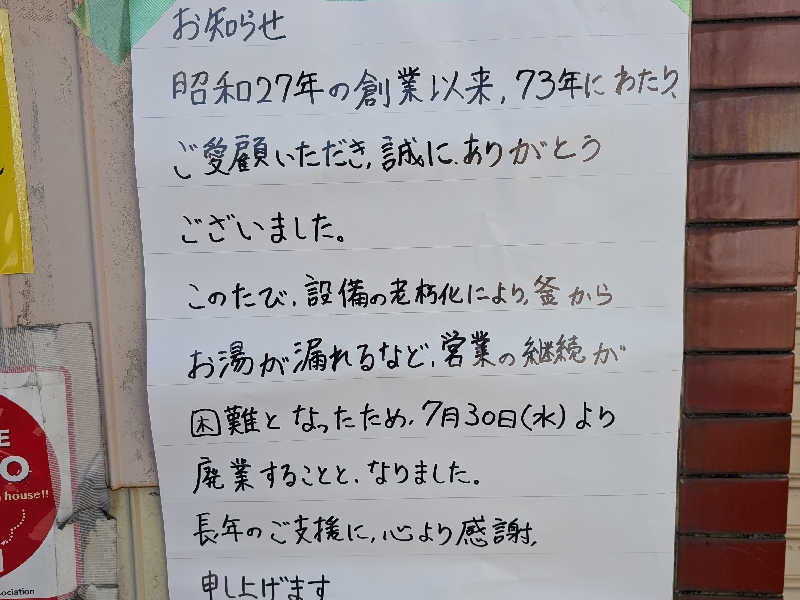 お知らせ
昭和27年の創業以来,73年にわたり、
ご愛顧いただき,誠に、ありがとう
ございました。
このたび、設備の老朽化により,釜から
お湯が漏れるなど、営業の継続が
困難となったため、7月30日(水)より
廃業することと、なりました。
長年のご支援に,心より感謝,
申し上げます
E
O
house!!
ociation